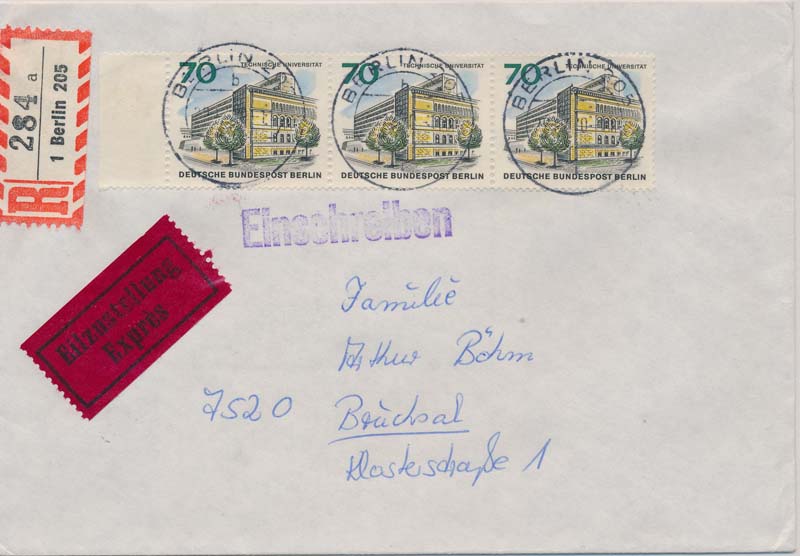 R
284 a
1 Berlin 205
70 TECHNISCHE UNIVERSITÄT
DEUTSCHE BUNDESPOST BERLIN
70 TECHNISCHE UNIVERSITÄT
DEUTSCHE BUNDESPOST BERLIN
70 TECHNISCHE UNIVERSITÄT
DEUTSCHE BUNDESPOST BERLIN
BERLIN
b
BERLIN
b
BERLIN
Einschreiben
Eilzustellung
Exprès
Familie
Arthur Böhm
7520 Brüchsal
Klosterstraße 1